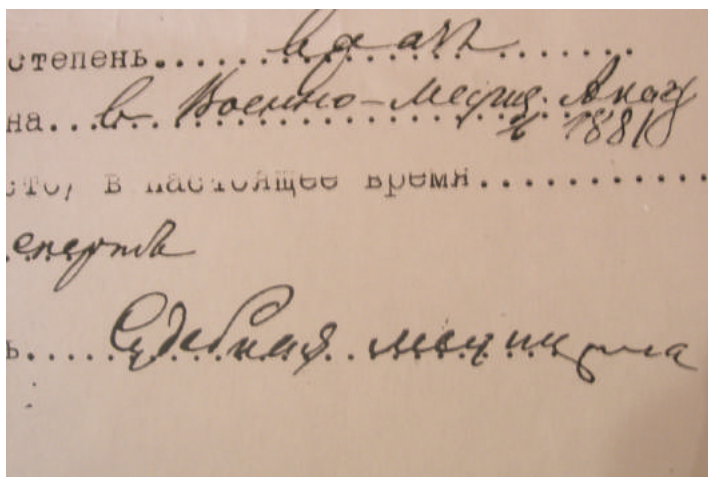 степень...врач...
на...в Военно-медиц. Акад
в 1881
в настоящее время...
Судебная медицина